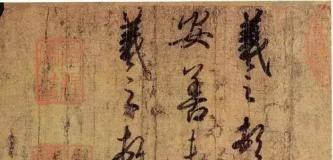 羲之頓
安善未
羲之頓